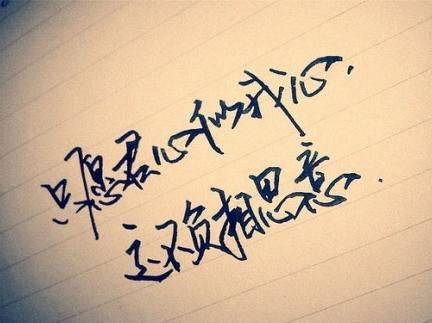 只愿君心似我心.
定不负相思意.